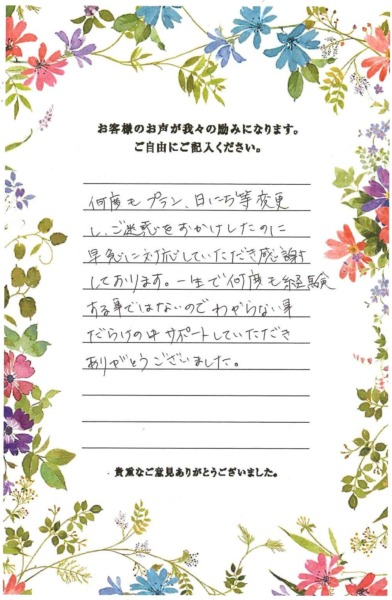 お客様のお声が我々の励みになります。
ご自由にご記入ください。
何度もプラン、日にち等変更
し、ご迷惑をおかけしたのに
早急に対応していただき感謝
しております。一生で何度も経験
する事ではないのでわからない事
だらけの中サポートしていただき
ありがとうございました。
貴重なご意見ありがとうございました。